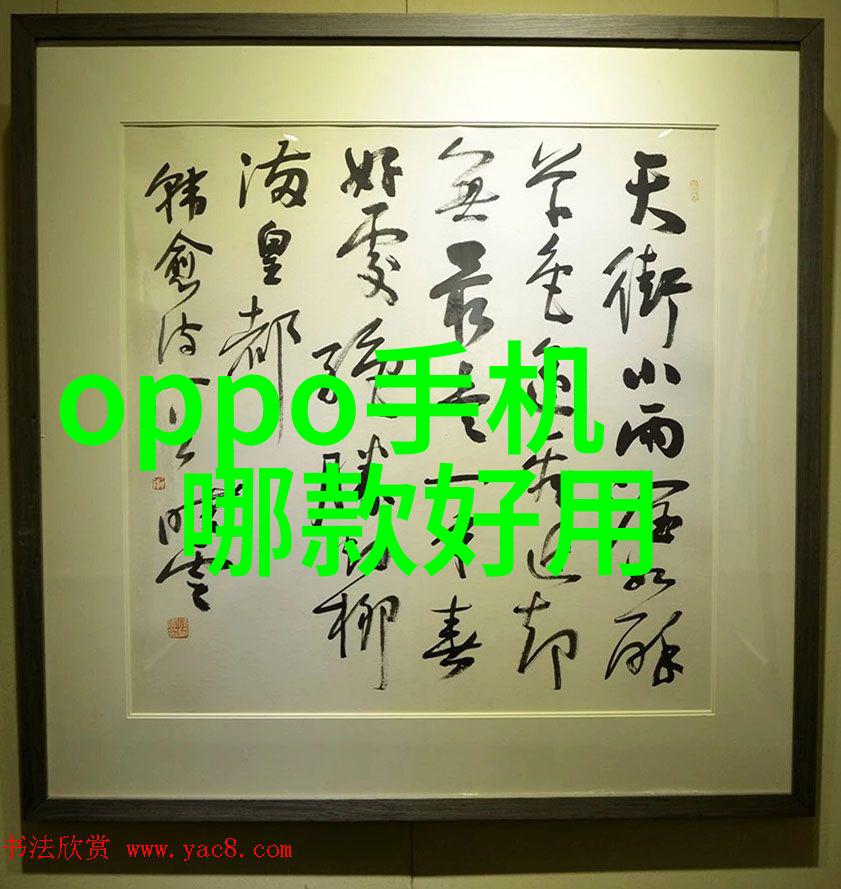 天街小雨潤如酥
草色遥看近却
無最是一年春
好處絕勝烟柳
滿皇都
韩愈诗一首
oppo手机
哪款好用
书法欣赏 www.yac8.com